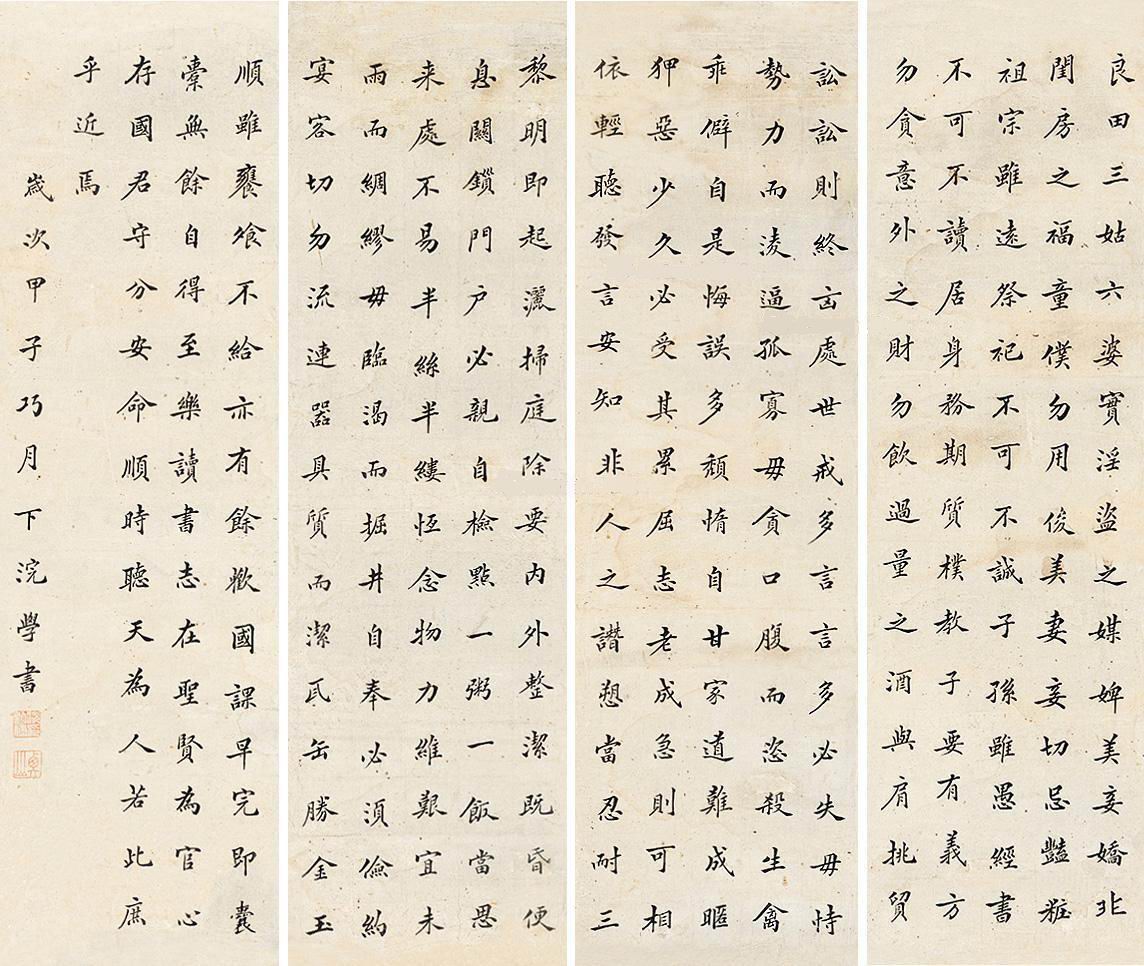 良田三姑六婆實淫盜之媒婢美妾嬌非
閨房之福童僕勿用俊美妻妾切忌豔粧
祖宗雖遠祭祀不可不誠子孫雖愚經書
不可不讀居身務期質樸教子要有義方
勿貪意外之財勿飲過量之酒與肩挑貿
訟訟則終凶處世戒多言言多必失毋恃
勢力而淩逼孤寡毋貪口腹而恣殺生禽
乖僻自是悔誤多頹惰自甘家道難成暱
狎惡少久必受其累屈志老成急則可相
依輕聽發言安知非人之譖愬當忍耐三
黎明即起灑掃庭除要內外整潔既昏便
息關鎖門户必親自檢點一粥一飯當思
来處不易半絲半縷恆念物力維艱宜未
雨而綢繆毋臨渴而掘井自奉必須儉約
宴客切勿流連器具質而潔瓦缶勝金玉
順雖饔飧不給亦有餘歡國課早完即囊
橐無餘自得至樂讀書志在聖賢為官心
存國君守分安命順時聽天為人若此庶
乎近焉
歲次甲子巧月下浣學書